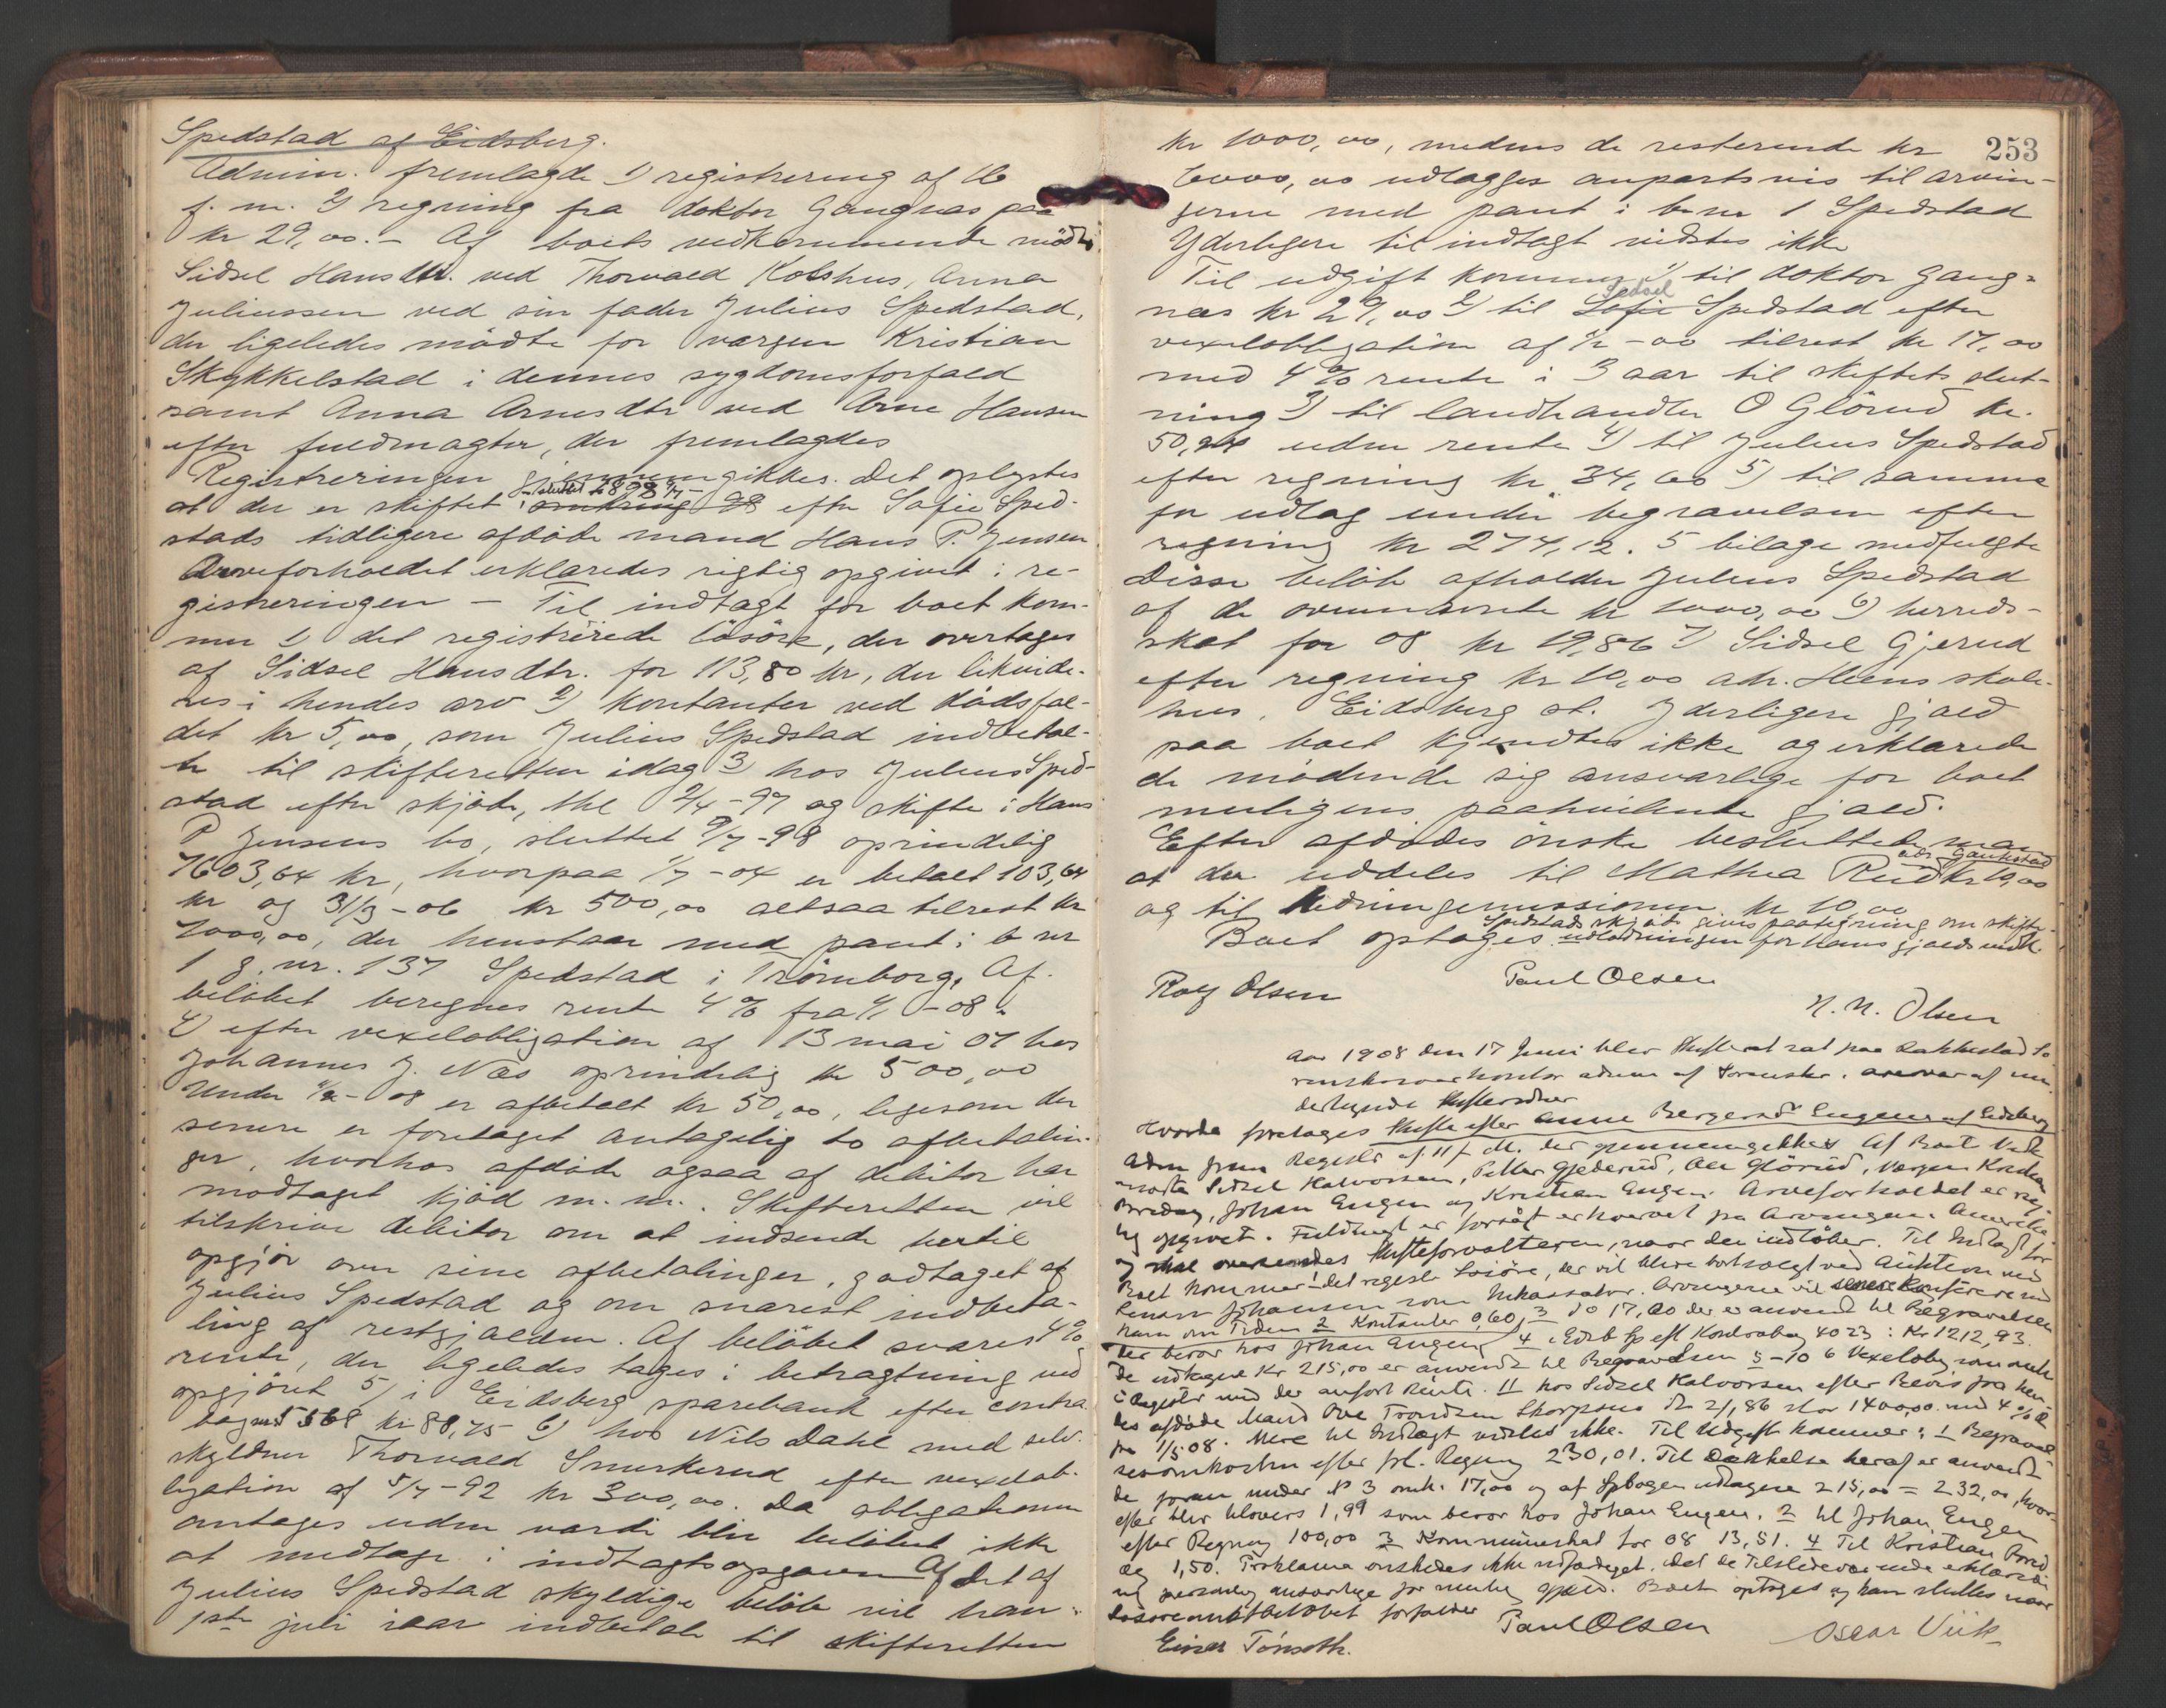 Spedstad af Eidsberg.
Admin. fremlagde 1) registrering af 16
f. m. 2) regning fra doktor Gangnæs paa
kr 29,00. – Af boets vedkommende mödte
Sidsel Hansdtr. ved Thorvald Kolshus, Anna
Juliussen ved sin fader Julius Spedstad,
der ligeledes mödte for værgen Kristian
Skykkelstad i dennes sygdomsforfald
samt Anna Arnesdtr ved Arne Hansen
efter fuldmagter, der fremlagdes
Registreringen gjennemgikkes. Det oplystes
sluttet 1898 9/7
at der er skiftet omkring 98 efter Sofie Sped-
stads tidligere afdöde mand Hans P. Jensen
Arveforholdet erklæredes rigtig opgivet i re-
gistreringen – Til indtægt for boet kom-
mer 1) det registrerede lösöre, der overtages
af Sidsel Hansdtr. for 113,80 kr, der likvide-
res i hendes arv 2) kontanter ved dödsfal-
det kr 5,00, som Julius Spedstad indbetal-
te til skifteretten idag 3) hos Julius Sped-
stad efter skjöde, thl 2/4-97 og skifte i Hans
P Jensens bo, sluttet 9/7-98 oprindelig
7603,64 kr, hvorpaa 1/7-04 er betalt 103,64
kr og 31/3-06 kr 500,00 altsaa tilrest kr
7000,00, der henstaar med pant i b nr
1 g. nr. 137 Spedstad i Trömborg. Af
belöbet beregnes rente 4 % fra 1/1-08.
4) efter vexelobligation af 13 mai 07 hos
Johannes J. Næs oprindelig kr 500,00
Under -08 er afbetalt kr 50,00, ligesom der
senere er foretaget antagelig to afbetalin-
ger, hvorhos afdöde ogsaa af debitor har
modtaget kjöd m. m. Skifteretten vil
tilskrive debitor om at indsende hertil
opgjör over sine afbetalinger, godtaget af
Julius Spedstad og om snarest indbeta-
ling af restgjælden. Af belöbet svares 4 %
rente, der ligeledes tages i betragtning ved
opgjöret 5) i Eidsberg sparebank efter contra
bog nr 5568 kr 88,75 6) hos Nils Dahl med selv-
skyldner Thorvald Smerkerud efter vexelob-
ligation af 5/7-92 kr 300,00. Da obligationen
antages uden værdi blir belöbet ikke
at medtage i indtægtsopgaven Af det af
Julius Spedstad skyldige belöb vil han
1ste juli iaar indbetale til skifteretten
253
kr 1000,00, medens de resterende kr
6000,00 udlægges anpartsvis til arvin-
gerne med pant i b. nr 1 Spedstad
Yderligere til indtægt vidstes ikke
Til udgift kommer 1) til doktor Gang-
Sidsel
næs kr 29,00 2) til Sofie Spedstad efter
vexelobligation af -00 tilrest kr 17,00
med 4 % rente i 3 aar til skiftets slut-
ning 3) til landhandler O Glörud kr.
50, uden rente 4) til Julius Spedstad
efter regning kr 34,60 5) til samme
for udlæg under begravelsen efter
regning kr 274,12. 5 bilage medfulgte
Disse belöb afholder Julius Spedstad
af de ovennævnte kr 1000,00 6) herreds-
skat for 08 kr 19,86 7) Sidsel Gjerud
efter regning kr 10,00 adr. Heens skole-
hus, Eidsberg st. Yderligere gjæld
paa boet kjendtes ikke og erklærede
de mödende sig ansvarlige for boet
muligens paahvilende gjæld.
Efter afdödes önske besluttede man
adr Gaukstad
at der uddeles til Mathea Rud kr 10,00
og til Hedningemissionen kr 10,00
Spedstads skjöte gives paategning om skifte-
Boet optages udlodningen for Hans gjælds vedk.
Rolf Olsen
Paul Olsen
N. N. Olsen
Aar 1908 den 17 Juni blev Skifteret sat paa Rakkestad So
renskriverkontor admin af Sorenskr. overvær af un
dertegnede Skiftevidner
Hvorda foretoges Skifte efter Anne Bergersd Eugene af Eidsberg
Adm frem Registr af 11 f M. der gjennemgikkes Af Boet Vedk
mödte Sidsel Halvorsen, Petter Gjederud, Ole Glörud, Værgen
Johan Eugen og Kristian Eugen. Arveforholdet er rig-
tig opgivet. Fuldmagt er forsögt erhvervet fra Arvingen i Amerika
og skal oversendes Skifteforvalteren, naar den indlöber. Til Indtægt for
Boet kommer 1 det registr Lösöre, der vil blive bortsolgt ved Auktion med
Lensm Johansen som Inkassator. Arvingerne vil senere konferere med
ham om Tiden 2 Kontanter 0,60, 3 do 17,00 der er anvendt til Begravelsen
der beror hos Johan Eugen, 4 i Edsb Sp efter Kontrabog 4023 : Kr 1212,93.
De udtagne Kr 215,00 er anvendt til Begravelsen 5–10 6 Vexeloblig som anfört
i Registr med der anfört Rente. 11 hos Sidsel Halvorsen efter Bevis fra hen
des afdöde Mand Ove Trondsen 2/1,86 stor 1400,00 med 4 % R
fra 1/5 08. Mere til Indtægt vidstes ikke. Til Udgift kommer: 1 Begravel
sesomkostn efter frl. Regning 230,01. Til Dækkelse heraf er anvendt
de foran under N 3 omh. 17,00 og af Spbogen udtagne 215,00 = 232,00, hvor-
efter blir tilovers 1,99 som beror hos Johan Eugen. 2 til Johan Eugen
efter Regning 100,00 3 Kommuneskat for 08 13,51. 4 Til Kristian
1,50. Proklama önskedes ikke udfærdiget, idet de Tilstedeværende erklærede
sig personlig ansvarlige for mulig Gjæld. Boet optages og kan sluttes naar
Lösöreauktbelöbet forfalder
Paul Olsen
Oscar Viik
Einar Tönseth.